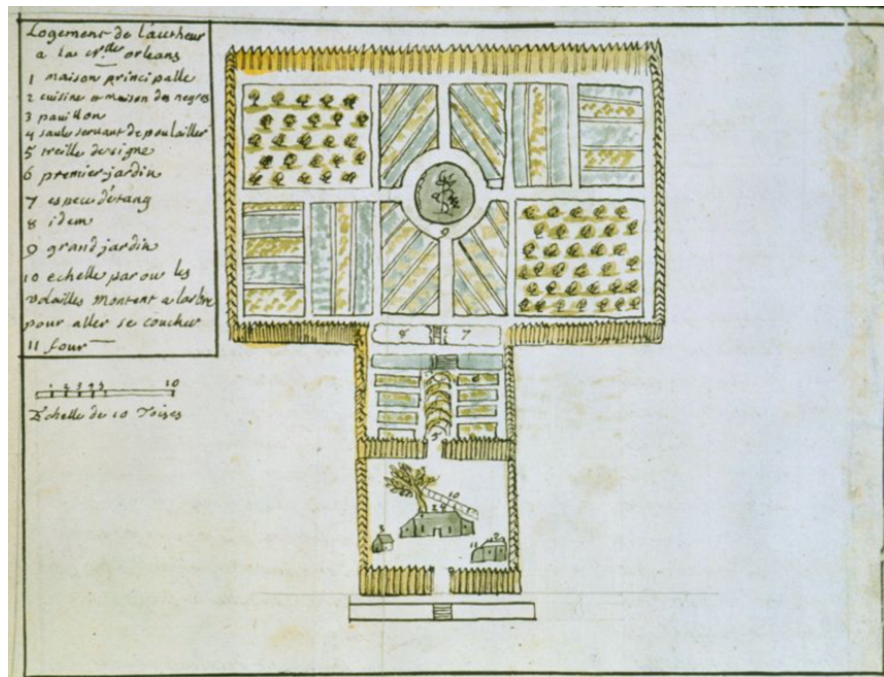 Logement de l'autheur
a la n.lle orleans
1 maison principalle
2 cuisine et maison des negres
3 pavillon
4 saule servant de poulailler
5 treille de vigne
6 premier jardin
7 espece d'étang
8 idem
9 grand jardin
10 echelle par ou les
volailles montent a larbre
pour aller se coucher
11 four
1 2 3 4 5 10
Echelle de 10 Toises
9
7
6
5
10
4
3
11 2